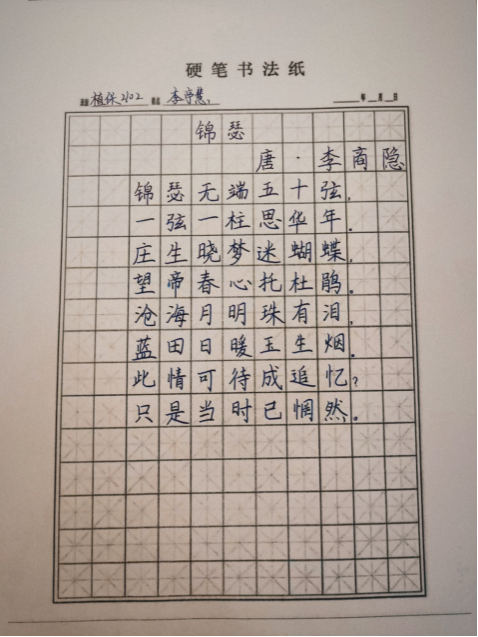 硬笔书法纸
植保2102 李守慧 年 月 日
锦瑟
唐·李商隐
锦瑟无端五十弦,
一弦一柱思华年.
庄生晓梦迷蝴蝶,
望帝春心托杜鹃。
沧海月明珠有泪,
蓝田日暖玉生烟.
此情可待成追忆?
只是当时已惘然。